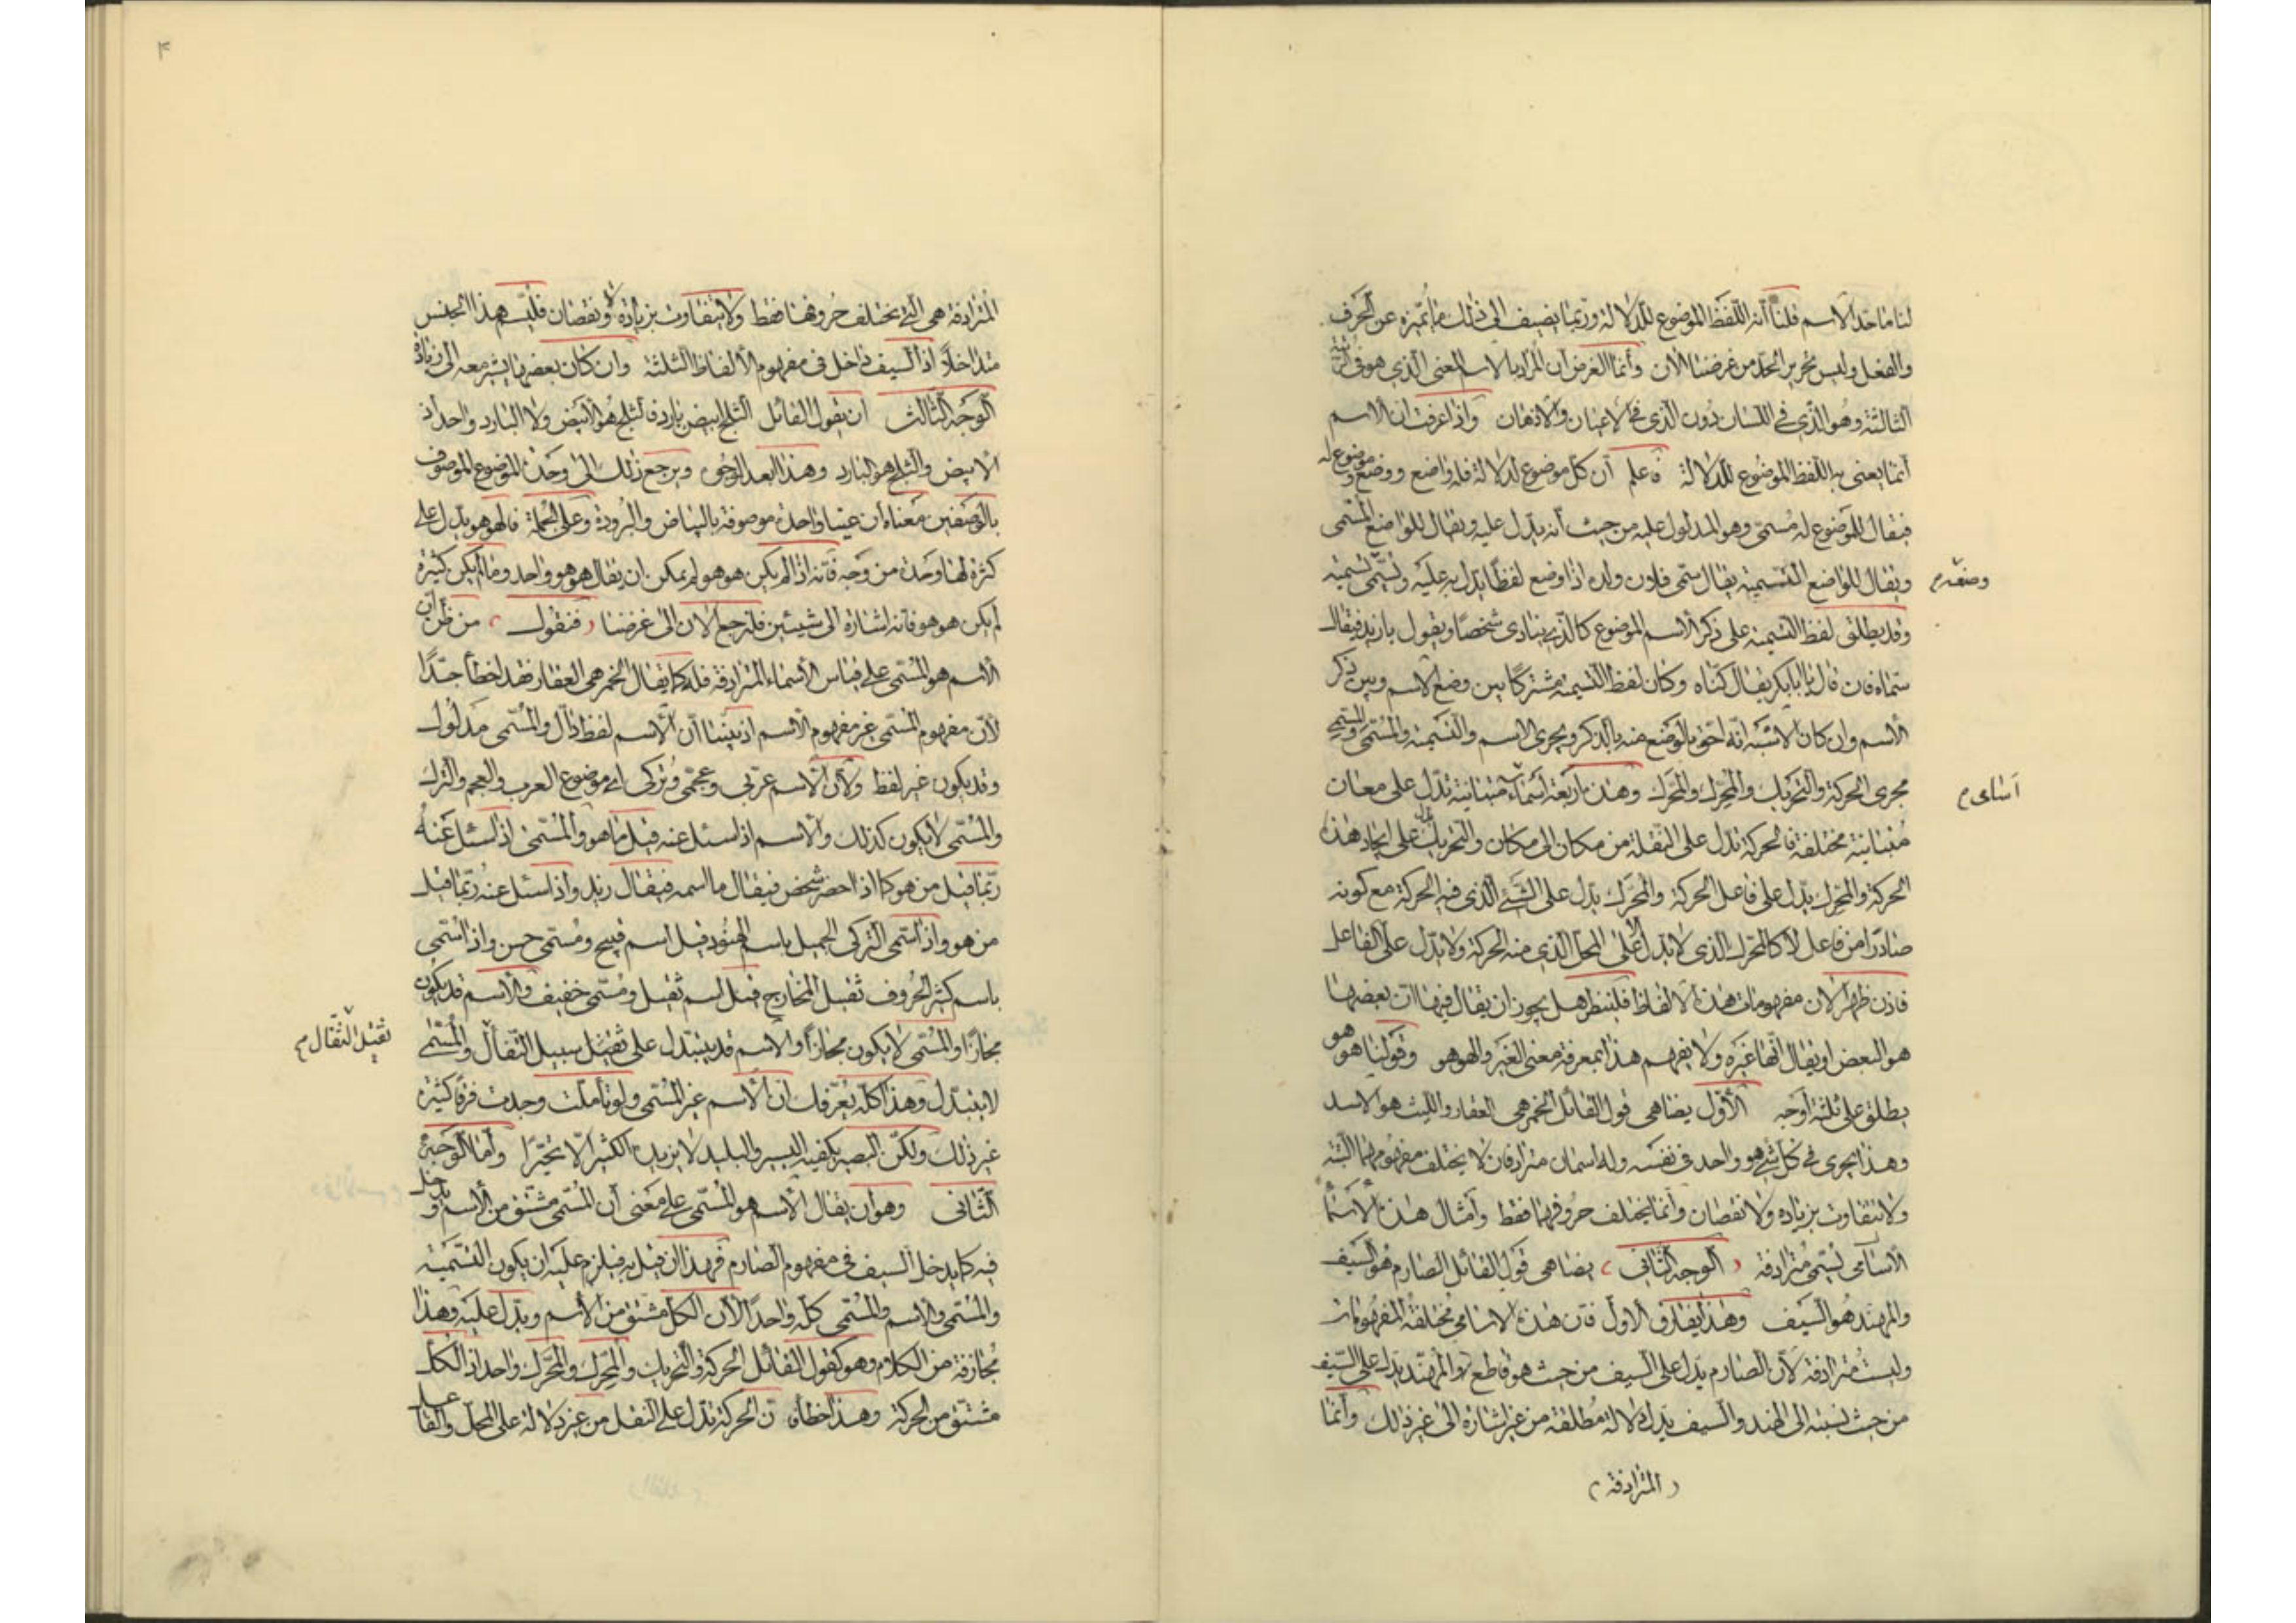 لنا ما حد الاسم قلنا أنه اللفظ الموضوع للدلالة وربما يضيف الى ذلك ما تميزه عن الحرف
والفعل وليس تحرير الحد من غرضنا الان وأنما الغرض ان المراد بالاسم المعنى الذي هو في الرتبة
الثالثة وهو الذي في اللسان دون الذي في الاعيان والاذهان واذا عرفت ان الاسم
أنما يعنى به اللفظ الموضوع للدلالة فاعلم أن كل موضوع لدلالة فله واضع ووضع وموضوع له
فيقال للموضوع له مسمى وهو المدلول عليه من حيث أنه يدل عليه ويقال للواضع المسمى
ويقال للواضع التسمية يقال سمى فلان ولده اذا وضع لفظا يدل به عليه وتسمى تسميته
وضعه م
وقد يطلق لفظ التسمية على ذكر الاسم الموضوع كالذي ينادى شخصا ويقول يا زيد فيقال
سماه فان قال يا أبا بكر يقال كناه وكان لفظ التسمية مشتركا بين وضع الاسم وبين ذكر
الاسم وان كان الاشبه انه احق بالوضع منه بالذكر ويجرى الاسم والتسمية والمسمى والمسمى
مجرى الحركة والتحريك والمحرك والمحرك وهذه أربعة أسماء متباينة تدل على معان
أسامى م
متباينة مختلفة فالحركة تدل على النقلة من مكان الى مكان والتحريك يدل على ايجاد هذه
الحركة والمحرك يدل على فاعل الحركة والمحرك يدل على الشيء الذى فيه الحركة مع كونه
صادرا من فاعل لا كالمتحرك الذى لا يدل الا على المحل الذي منه الحركة ولا يدل على الفاعل
فاذن ظهر الان مفهومات هذه الالفاظ فلينظر هل يجوز ان يقال فيها ان بعضها
هو البعض او يقال انها غيره ولا يفهم هذا بمعرفة معنى الغير والهو هو وقولنا هو هو
يطلق على ثلثة أوجه الأول يضاهى قول القائل الخمر هى العقار والليث هو الاسد
وهذا يجرى في كل شيء هو واحد في نفسه وله اسمان مترادفان لا يختلف مفهومهما البتة
ولا يتفاوت بزياده ولا نقصان وأنما يختلف حروفهما فقط وأمثال هذه الاسما
الاسامى تسمى مترادفة ( الوجه الثانى ) يضاهى قول القائل الصارم هو السيف
والمهند هو السيف وهذا يفارق الاول فان هذه الاسامى مختلفة المفهومات
وليست مترادفة لأن الصارم يدل على السيف من حيث هو قاطع والمهند يدل على السيف
من حيث نسبته الى الهند والسيف يدل دلالة مطلقة من غير اشارة الى غير ذلك وأنما
( المترادفة )
۴
المترادفة هى التي تختلف حروفها فقط ولا يتفاوت بزيادة ولا نقصان فليسم هذا الجنس
متداخلا اذ السيف داخل في مفهوم الألفاظ الثلثة وان كان بعضها يشير معه الى زيادة
الوجه الثالث أن يقول القائل الثلج ابيض بارد فالثلج هو الأبيض ولا البارد واحد اذ
الابيض والثلج هو البارد وهذا ابعد الوجوه ويرجع ذلك الى وحدة الموضوع الموصوف
بالوصفين معناه ان عينا واحدة موصوفة بالبياض والبرودة وعلى الجملة فالهو هو يدل على
كثرة لها وحدة من وجه فانه اذا لم يكن هو هو لم يمكن ان يقال هو هو واحد وما لم يكن كثيرة
لم يكن هو هو فانه اشارة الى شيئين فلنرجع الان الى غرضنا ( فنقول ) من ظن ان
الأسم هو المسمى على قياس الأسماء المترادفة فله كما يقال الخمر هى العقار فقد اخطأ جدا
لأن مفهوم المسمى غير مفهوم الاسم اذ بينا ان الاسم لفظ دال والمسمى مدلول
وقد يكون غير لفظ ولأن الاسم عربى وعجمى وتركى اى موضوع العرب والعجم والترك
والمسمى لا يكون كذلك والاسم اذا سئل عنه قيل ما هو والمسمى اذا سئل عنه
ربما قيل من هو كما اذا حضر شخص فيقال ما اسمه فيقال زيد واذا سئل عنه ربما قيل
من هو واذا سمى التركى الجميل باسم الهنود قيل اسم قبيح ومسمى حسن واذا سمى
باسم كثير الحروف ثقيل المخارج قيل اسم ثقيل ومسمى خفيف والاسم قد يكون
مجازا والمسمى لا يكون مجازا والاسم قد يتبدل على ثقيل سبيل التفأل والمسمى
لا يتبدل وهذا كله يعرفك ان الأسم غير المسمى ولو تأملت وجدت فرقا كثيره
غير ذلك ولكن البصير يكفيه اليسير والبليد لا يزيده الكثير الا تحيرا وأما الوجه
الثانى وهو ان يقال الأسم هو المسمى على معنى أن المسمى مشتق من الأسم ويدخل
فيه كما يدخل السيف في مفهوم الصارم فهذا ان قيل به فيلزم عليه ان يكون التسمية
والمسمى والاسم والمسمى كله واحدا لأن الكل مشتق من الأسم ويدل عليه وهذا
مجازفة من الكلام وهو كقول القائل الحركة والتحريك والمحرك والمحرك واحد اذ الكل
مشتق من الحركة وهذا خطأ ن الحركة تدل على النقل من غير دلالة على المحل والفاعل